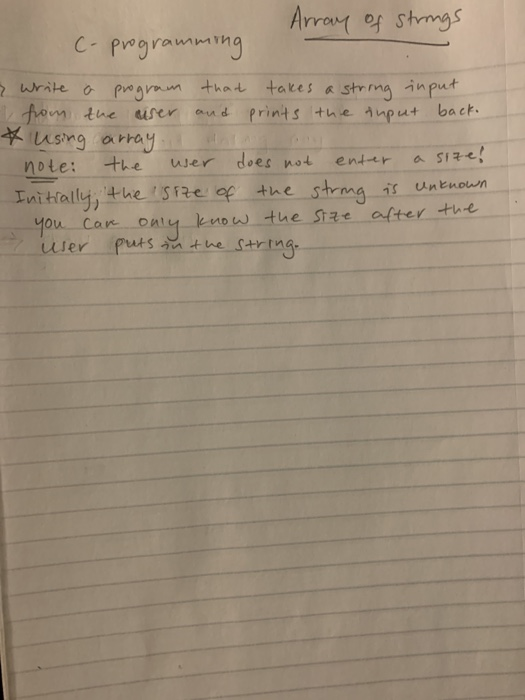 Array of strings
C - programming
Write a program that takes a string input
from the user and prints the input back.
* Using array
note: the user does not enter a size!
Initially, the size of the string is unknown
you can only know the size after the
user puts in the string.